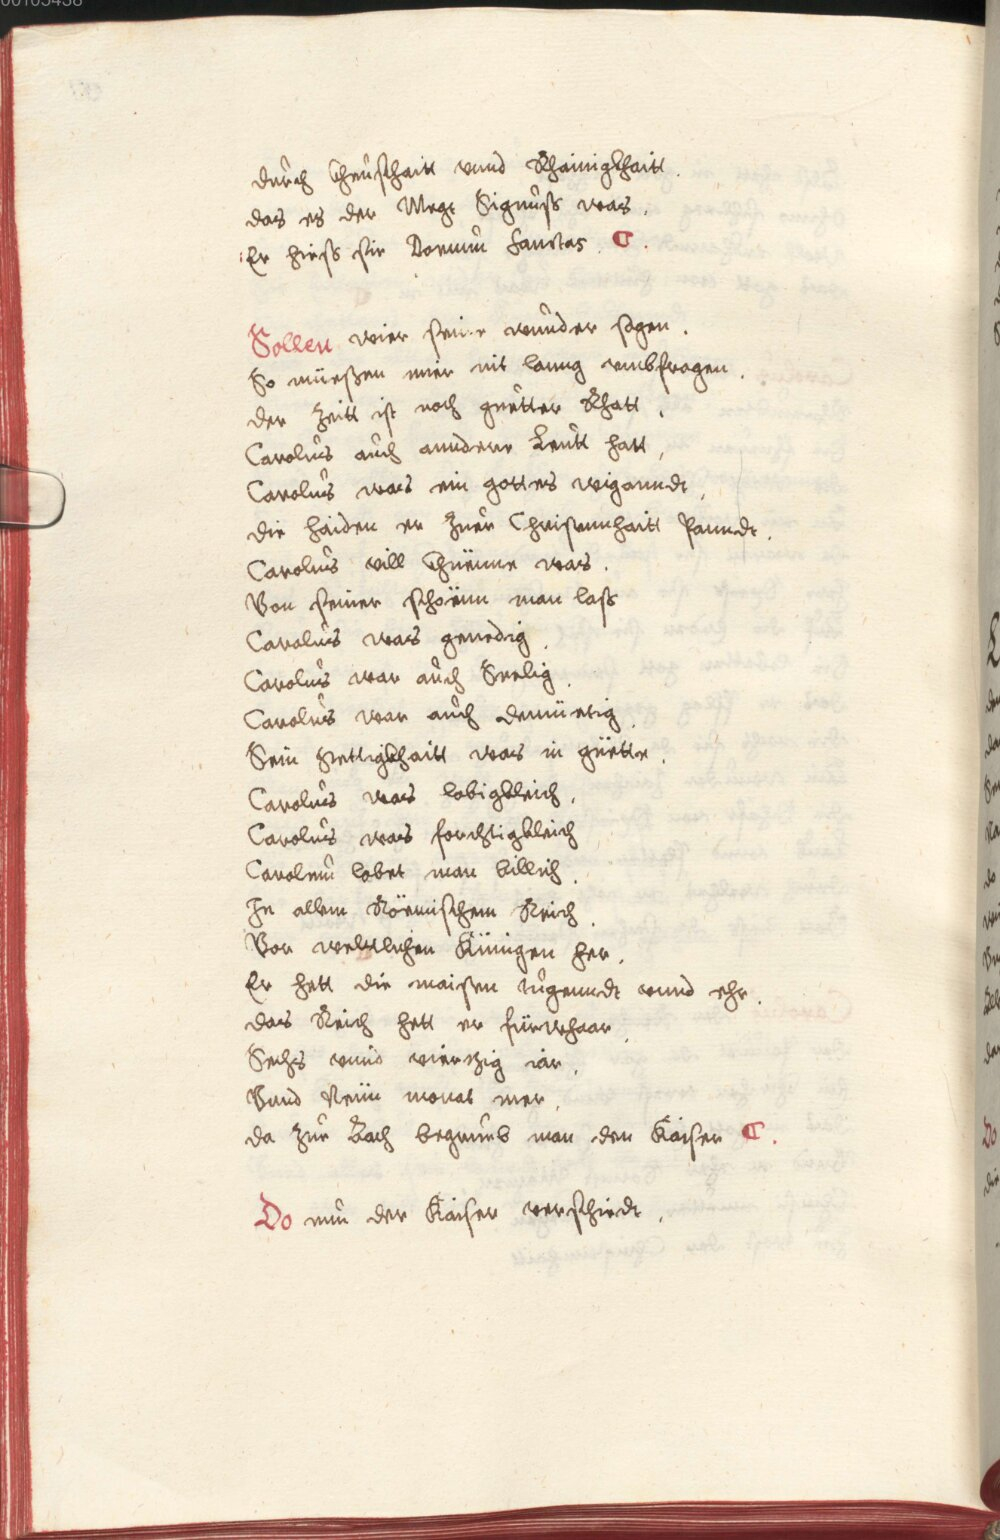 00103438
durch Cheuschait vnnd Khainigkhaitt.
das es der Megt Signuss was.
Er hiess sie Domum Sanctas. C.
Sollen wier seine wunder sagen.
So müessen mier nit lanng vmbfragen.
der Zeitt ist noch guetter Rhatt.
Carolus auch anndere Leutt hatt,
Carolus was ein gottes wiganndt,
die haiden er Zuer Christennhaitt Panndt.
Carolus vill Chüenne was.
Von seiner schoënn man lass
Carolus was genedig.
Carolus war auch Seelig.
Carolus war auch demüetig.
Sein stettigkhaitt was in güette.
Carolus was lobigkleich.
Carolus was forchtigkleich
Carolum lobet man billich.
In allem Röemischem Reich.
Vor weltlichen Künigen her.
Er hett die maisen tugenndt vnnd ehr.
das Reich hett er fürwhaar.
Sechs vnnd viertzig iar.
Vnnd Neün monat mer.
da Zur Bach begrueb man den Kaiser C.
Do nun der Kaiser verschiedt.